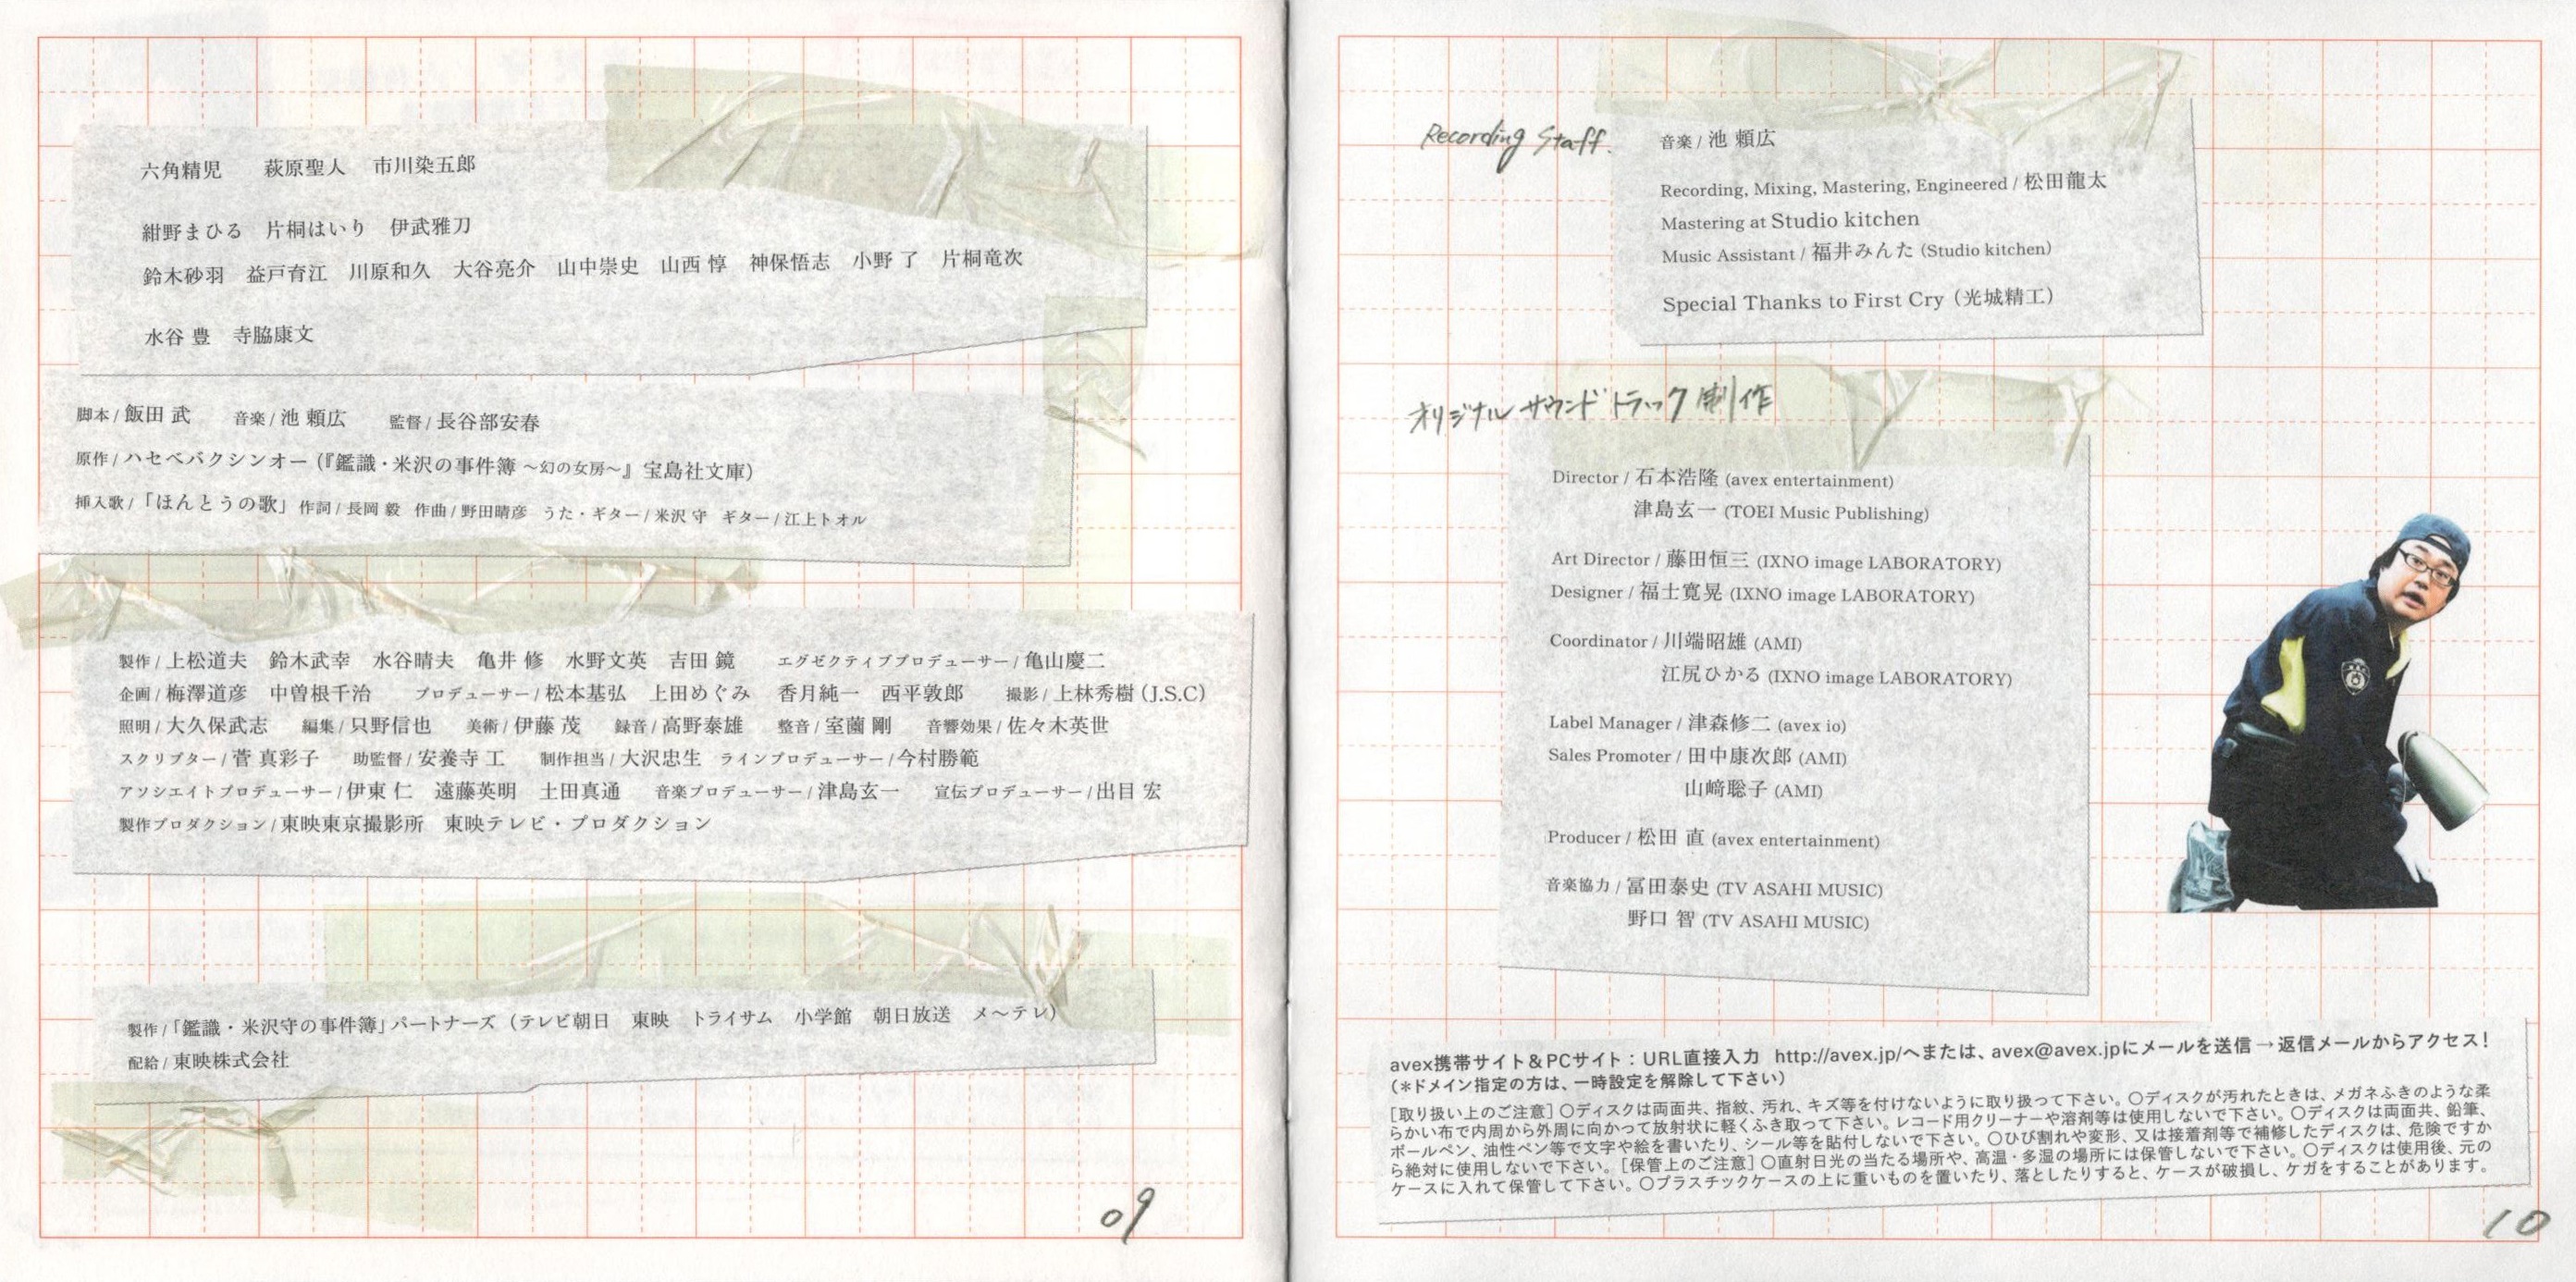 六角精児　萩原聖人　市川染五郎
紺野まひる　片桐はいり　伊武雅刀
鈴木砂羽　益戸育江　川原和久　大谷亮介　山中崇史　山西 惇　神保悟志　小野 了　片桐竜次
水谷 豊　寺脇康文
脚本/飯田 武　音楽/池 頼広　監督/長谷部安春
原作/ハセベバクシンオー（『鑑識・米沢の事件簿 〜幻の女房〜』宝島社文庫）
挿入歌/「ほんとうの歌」作詞/長岡 毅　作曲/野田晴彦　うた・ギター/米沢 守　ギター/江上トオル
製作/上松道夫　鈴木武幸　水谷晴夫　亀井 修　水野文英　吉田 鏡　エグゼクティブプロデューサー/亀山慶二
企画/梅澤道彦　中曽根千治　プロデューサー/松本基弘　上田めぐみ　香月純一　西平敦郎　撮影/上林秀樹（J.S.C）
照明/大久保武志　編集/只野信也　美術/伊藤 茂　録音/高野泰雄　整音/室薗 剛　音響効果/佐々木英世
スクリプター/菅 真彩子　助監督/安養寺 工　制作担当/大沢忠生　ラインプロデューサー/今村勝範
アソシエイトプロデューサー/伊東 仁　遠藤英明　土田真通　音楽プロデューサー/津島玄一　宣伝プロデューサー/出目 宏
製作プロダクション/東映東京撮影所　東映テレビ・プロダクション
製作/「鑑識・米沢守の事件簿」パートナーズ（テレビ朝日　東映　トライサム　小学館　朝日放送　メ〜テレ）
配給/東映株式会社
09
Recording Staff.
音楽/池 頼広
Recording, Mixing, Mastering, Engineered/松田龍太
Mastering at Studio kitchen
Music Assistant/福井みんた（Studio kitchen）
Special Thanks to First Cry（光城精工）
オリジナル サウンドトラック制作
Director/石本浩隆 (avex entertainment)
津島玄一 (TOEI Music Publishing)
Art Director/藤田恒三 (IXNO image LABORATORY)
Designer/福士寛晃 (IXNO image LABORATORY)
Coordinator/川端昭雄 (AMI)
江尻ひかる (IXNO image LABORATORY)
Label Manager/津森修二 (avex io)
Sales Promoter/田中康次郎 (AMI)
山﨑聡子 (AMI)
Producer/松田 直 (avex entertainment)
音楽協力/冨田泰史 (TV ASAHI MUSIC)
野口 智 (TV ASAHI MUSIC)
avex携帯サイト＆PCサイト：URL直接入力 http://avex.jp/へまたは、avex@avex.jpにメールを送信→返信メールからアクセス！
（＊ドメイン指定の方は、一時設定を解除して下さい）
［取り扱い上のご注意］○ディスクは両面共、指紋、汚れ、キズ等を付けないように取り扱って下さい。○ディスクが汚れたときは、メガネふきのような柔
らかい布で内周から外周に向かって放射状に軽くふき取って下さい。レコード用クリーナーや溶剤等は使用しないで下さい。○ディスクは両面共、鉛筆、
ボールペン、油性ペン等で文字や絵を書いたり、シール等を貼付しないで下さい。○ひび割れや変形、又は接着剤等で補修したディスクは、危険ですか
ら絶対に使用しないで下さい。［保管上のご注意］○直射日光の当たる場所や、高温・多湿の場所には保管しないで下さい。○ディスクは使用後、元の
ケースに入れて保管して下さい。○プラスチックケースの上に重いものを置いたり、落としたりすると、ケースが破損し、ケガをすることがあります。
10